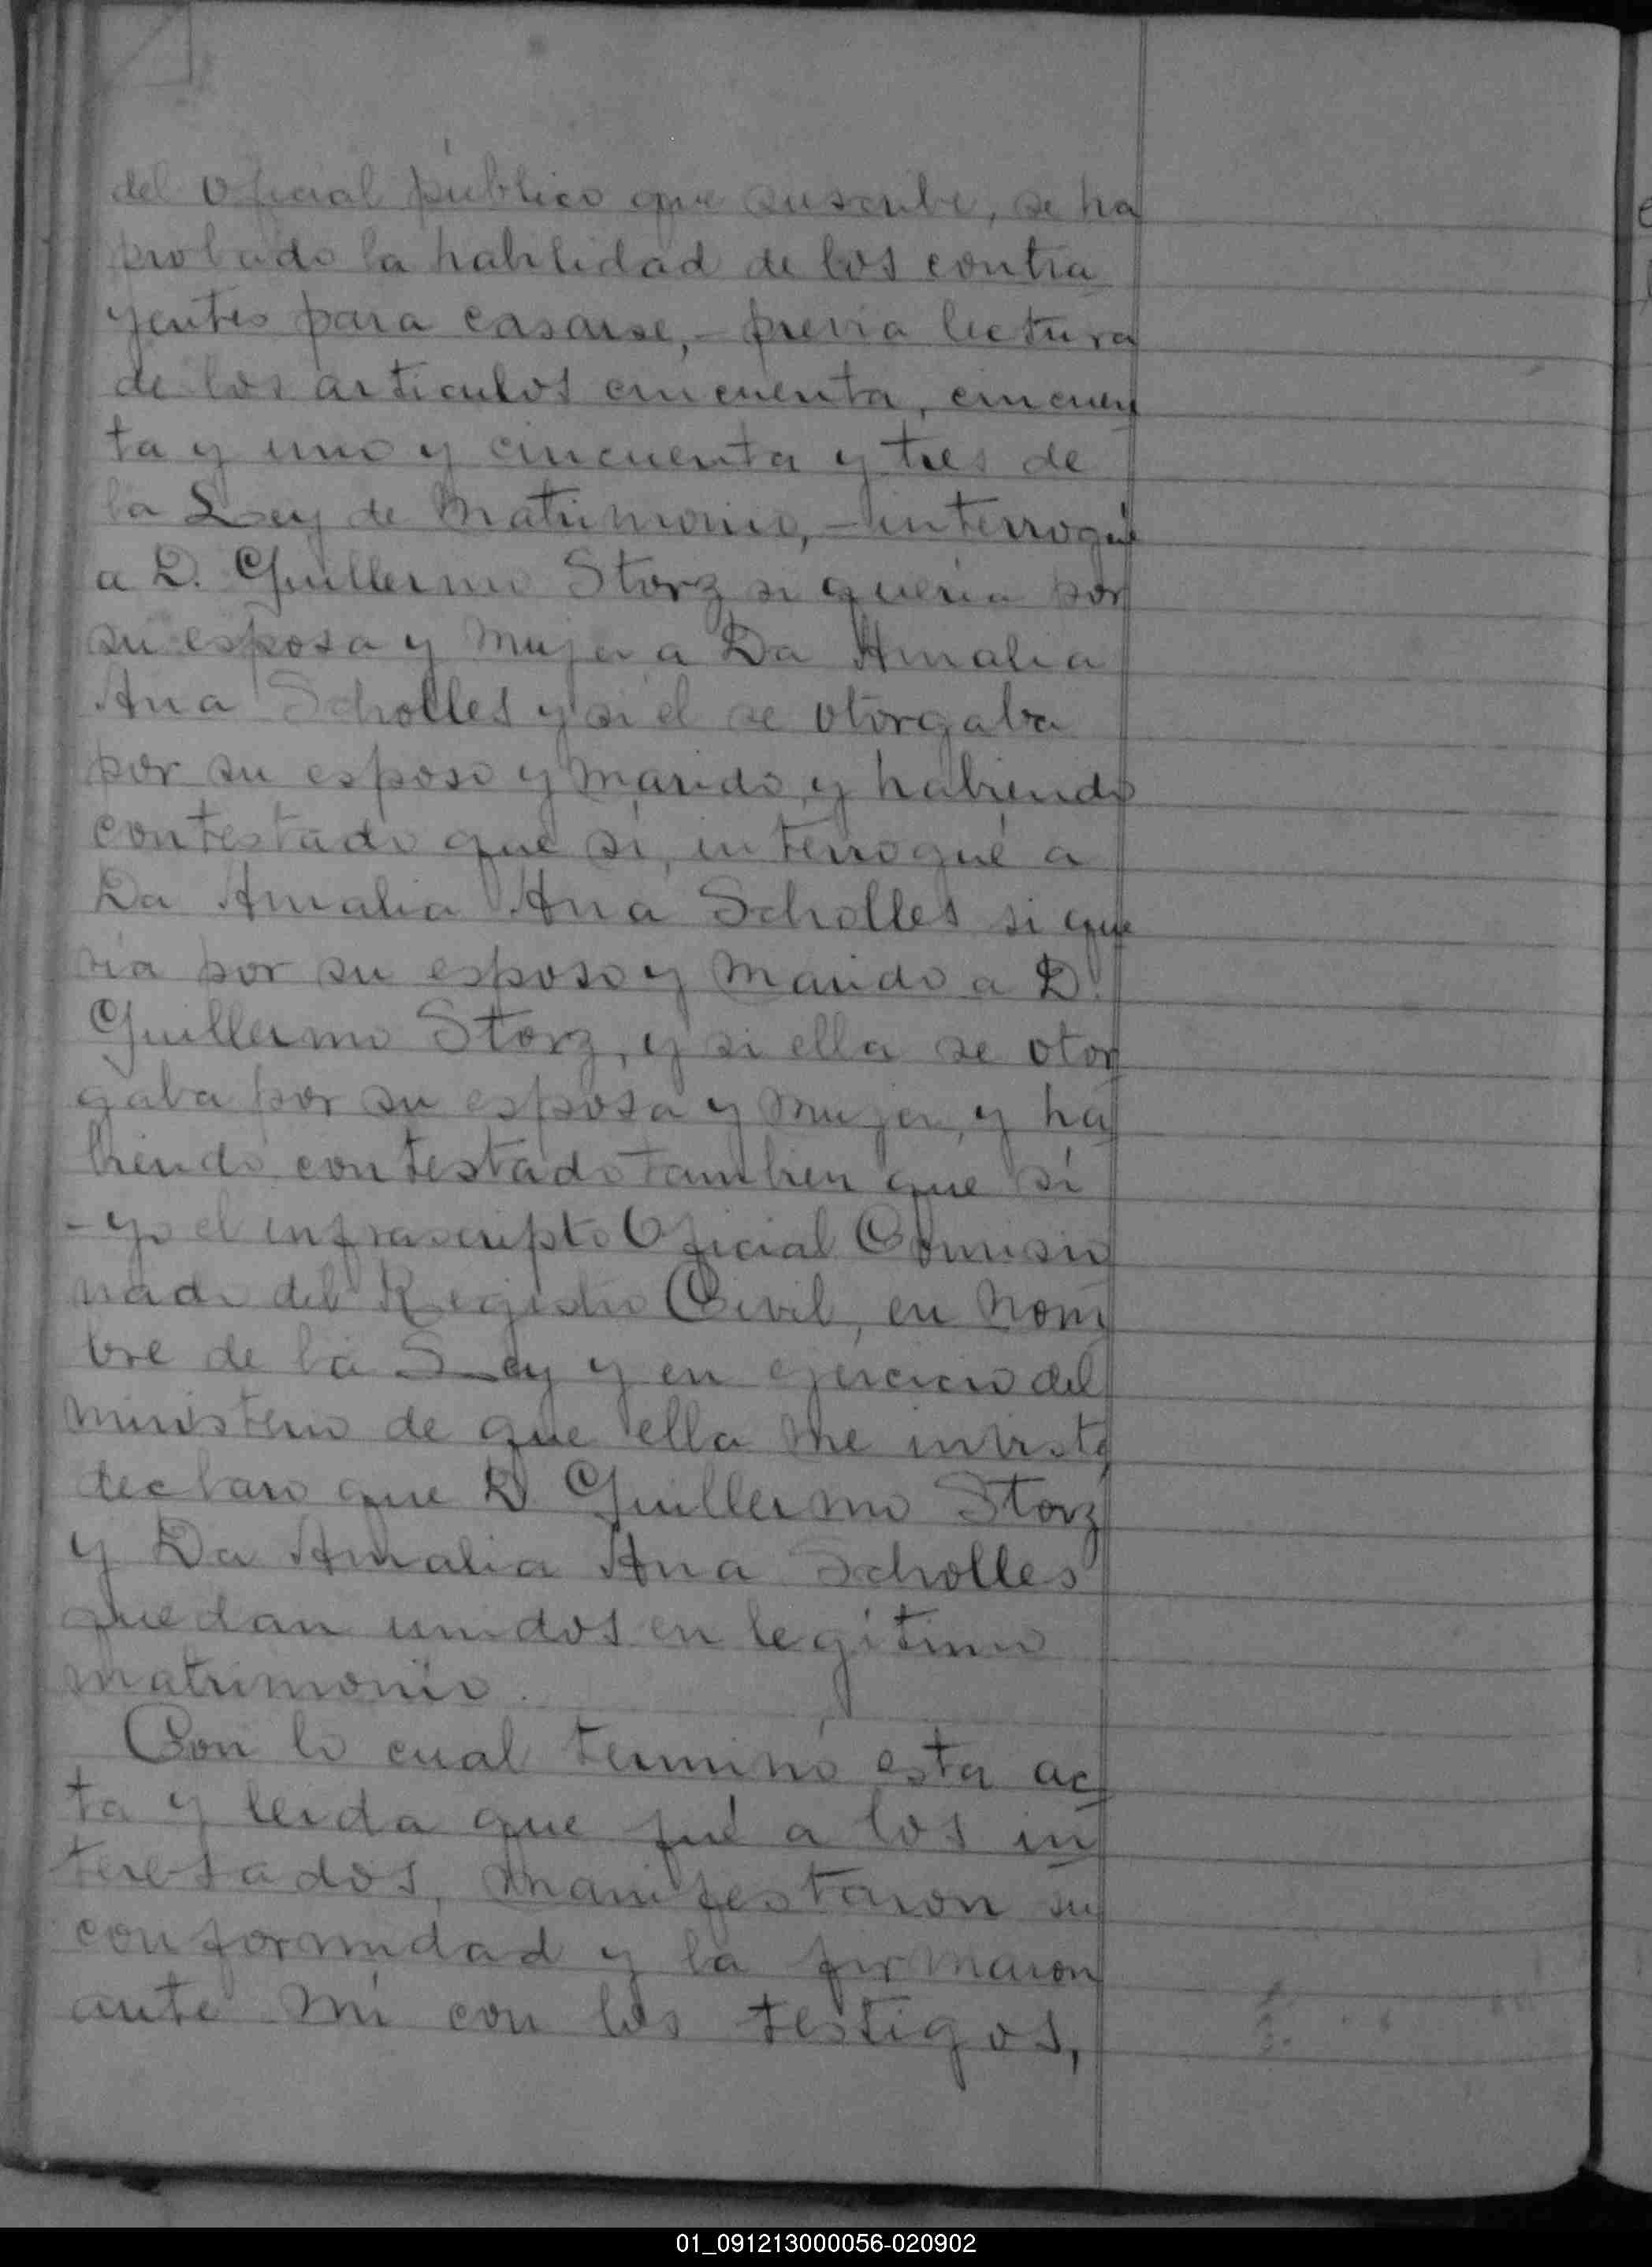 del Oficial público que suscribe, se ha
probado la habilidad de los contra
yentes para casarse, - previa lectura
de los articulos cincuenta, cincuen
ta y uno y cincuenta y tres de
la Ley de Matrimonio, - interrogué
a D. Guillermo Storz si queria por
su esposa y mujer a Da Amalia
Ana Scholles y si el se otorgaba
por su esposo y marido, y habiendo
contestado que si, interrogué a
Da Amalia Ana Scholles si que
ria por su esposo y marido a D.
Guillermo Storz, y si ella se otor
gaba por su esposa y mujer, y ha
biendo contestado tambien que si
- yo el infrascripto Oficial Comisio
nado del Registro Civil, en nom
bre de la Ley y en ejercicio del
ministerio de que ella me inviste
declaro que D. Guillermo Storz
y Da Amalia Ana Scholles
quedan unidos en legítimo
matrimonio.
Con lo cual terminó esta ac
ta y leida que fué a los in
teresados, manifestaron su
conformidad y la firmaron
ante mi con los testigos,
01_091213000056-020902